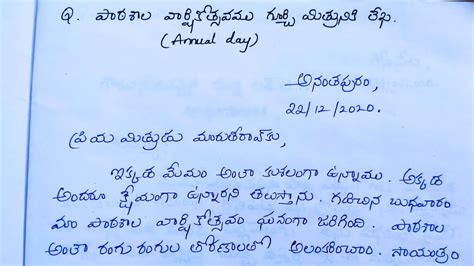 Q. పాఠశాల వార్షికోత్సవము గూర్చి మిత్రునికి లేఖ.
(Annual day)
అనంతపురం,
22/12/2020.
ప్రియ మిత్రుడు మారుతీరావ్‌కు,
ఇక్కడ మేమం అంతా కుశలంగా ఉన్నాము. అక్కడ
అందరూ క్షేమంగా ఉన్నారని తలుస్తాను. గడిచిన బుధవారం
మా పాఠశాల వార్షికోత్సవం ఘనంగా జరిగింది. పాఠశాల
అంతా రంగు రంగుల తోరణాలతో అలంకరించాం. సాయంత్రం